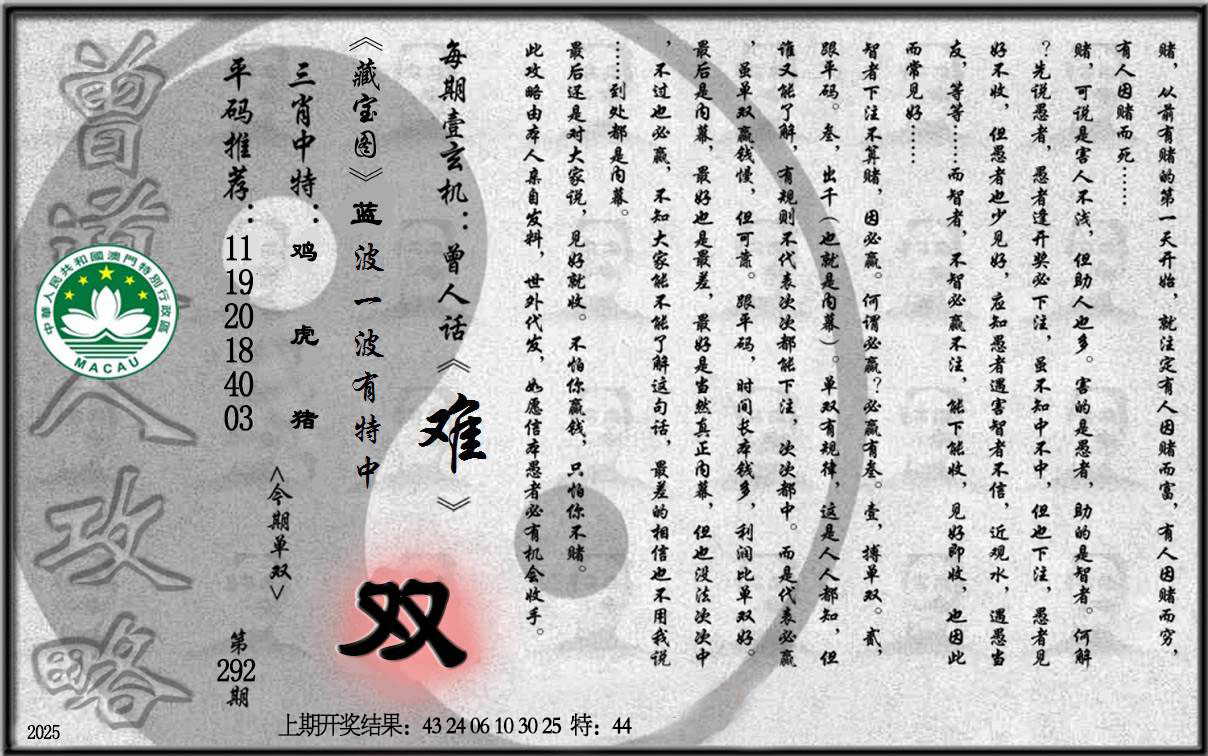 赌，从前有赌的第一天开始，就注定有人因赌而富，有人因赌而穷，
有人因赌而死……
赌，可说是害人不浅，但助人也多。害的是愚者，助的是智者。何解
？先说愚者，愚者逢开奖必下注，虽不知中不中，但也下注，愚者见
好不收，但愚者也少见好，应知愚者遇害智者不信，近观水，遇愚当
友，等等……而智者，不智必赢不注，能下能收，见好即收，也因此
而常见好……
智者下注不算赌，因必赢。何谓必赢？必赢有叁。壹，搏单双。贰，
跟平码。叁，出千（也就是内幕）。单双有规律，这是人人都知，但
谁又能了解，有规则不代表次次都能下注，次次都中。而是代表必赢
，虽单双赢钱慢，但可靠。跟平码，时间长本钱多，利润比单双好。
最后是内幕，最好也是最差，最好是当然真正内幕，但也没法次次中
，不过也必赢，不知大家能不能了解这句话，最差的相信也不用我说
……到处都是内幕。
最后还是对大家说，见好就收。不怕你赢钱，只怕你不赌。
此攻略由本人亲自发料，世外代发，如愿信本愚者必有机会收手。
每期壹玄机：曾人话《难》
《藏宝图》蓝波一波有特中
双
三肖中特：鸡虎猪
<今期单双>
平码推荐：11 19 20 18 40 03
第292期
曾道人攻略
中華人民共和國澳門特別行政區
MACAU
上期开奖结果：43 24 06 10 30 25 特：44
2025